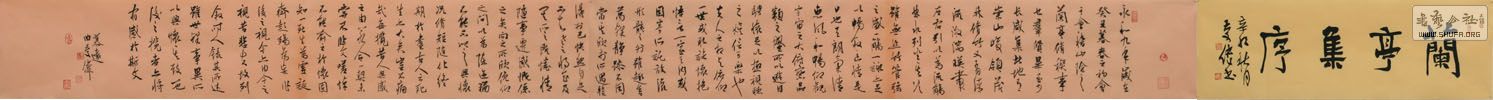 蘭亭集序
辛卯秋月
永和九年歲在
癸丑暮春之初會
于會稽山陰之
蘭亭脩禊事
也群賢畢至少
長咸集此地有
崇山峻領茂
林脩竹又有清
流激湍映帶
左右引以為流觴
曲水列坐其次
雖無絲竹管弦
之盛一觴一詠亦足
以暢敘幽情是
日也天朗氣清
惠風和暢仰觀
宇宙之大俯察品
類之盛所以遊目
騁懷足以極視聽
之娛信可樂也夫
人之相與俯仰
一世或取諸懷抱
悟言一室之內或
因寄所託放浪
形骸之外雖趣舍
萬殊靜躁不同
當其欣於所遇暫
得於己快然自足
不知老之將至及
其所之既倦情
隨事遷感慨係
之矣向之所欣俛仰
之間以為陳迹猶
不能不以之興懷
況脩短隨化終
期於盡古人云死
生亦大矣豈不痛
哉每攬昔人興感
之由若合一契未
嘗不臨文嗟悼
不能喻之於懷固
知一死生為虛誕
齊彭殤為妄作
後之視今亦由今之
視昔悲夫故列
敘時人錄其所述
雖世殊事異所
以興懷其致一也
後之攬者亦將
有感於斯文
WWW.SHUFA.ORG